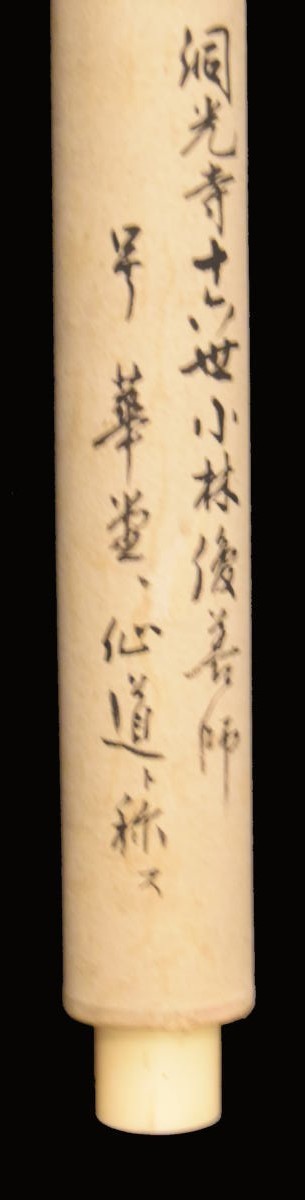 洞光寺十六世小林後善師
号華堂、仙道ト称ス